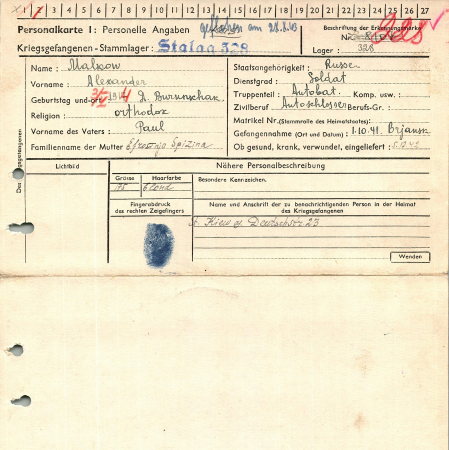 X 1 2 3 4 5 6 7 8 9 10 11 12 13 14 15 16 17 18 19 20 21 22 23 24 25 26 27
Personalkarte I: Personelle Angaben
geflohen am 28.8.43
Beschriftung der Erkennungsmarke
Kriegsgefangenen-Stammlager: Stalag 328
Nr.
Lager: 328
Des Kriegsgefangenen
Name: Malkow
Vorname: Alexander
Geburtstag und -ort:
Religion: orthodox
Vorname des Vaters: Paul
Familienname der Mutter:
Staatsangehörigkeit: Russe
Dienstgrad: Soldat
Truppenteil: Autobat. Komp. usw.:
Zivilberuf: Autoschlosser Berufs-Gr.:
Matrikel Nr. (Stammrolle des Heimatstaates):
Gefangennahme (Ort und Datum): 1.10.41. Brjansk
Ob gesund, krank, verwundet, eingeliefert:
Lichtbild
Nähere Personalbeschreibung
Grösse Haarfarbe
blond
Besondere Kennzeichen:
Fingerabdruck
des rechten Zeigefingers
Name und Anschrift der zu benachrichtigenden Person in der Heimat
des Kriegsgefangenen
Kiew
Wenden